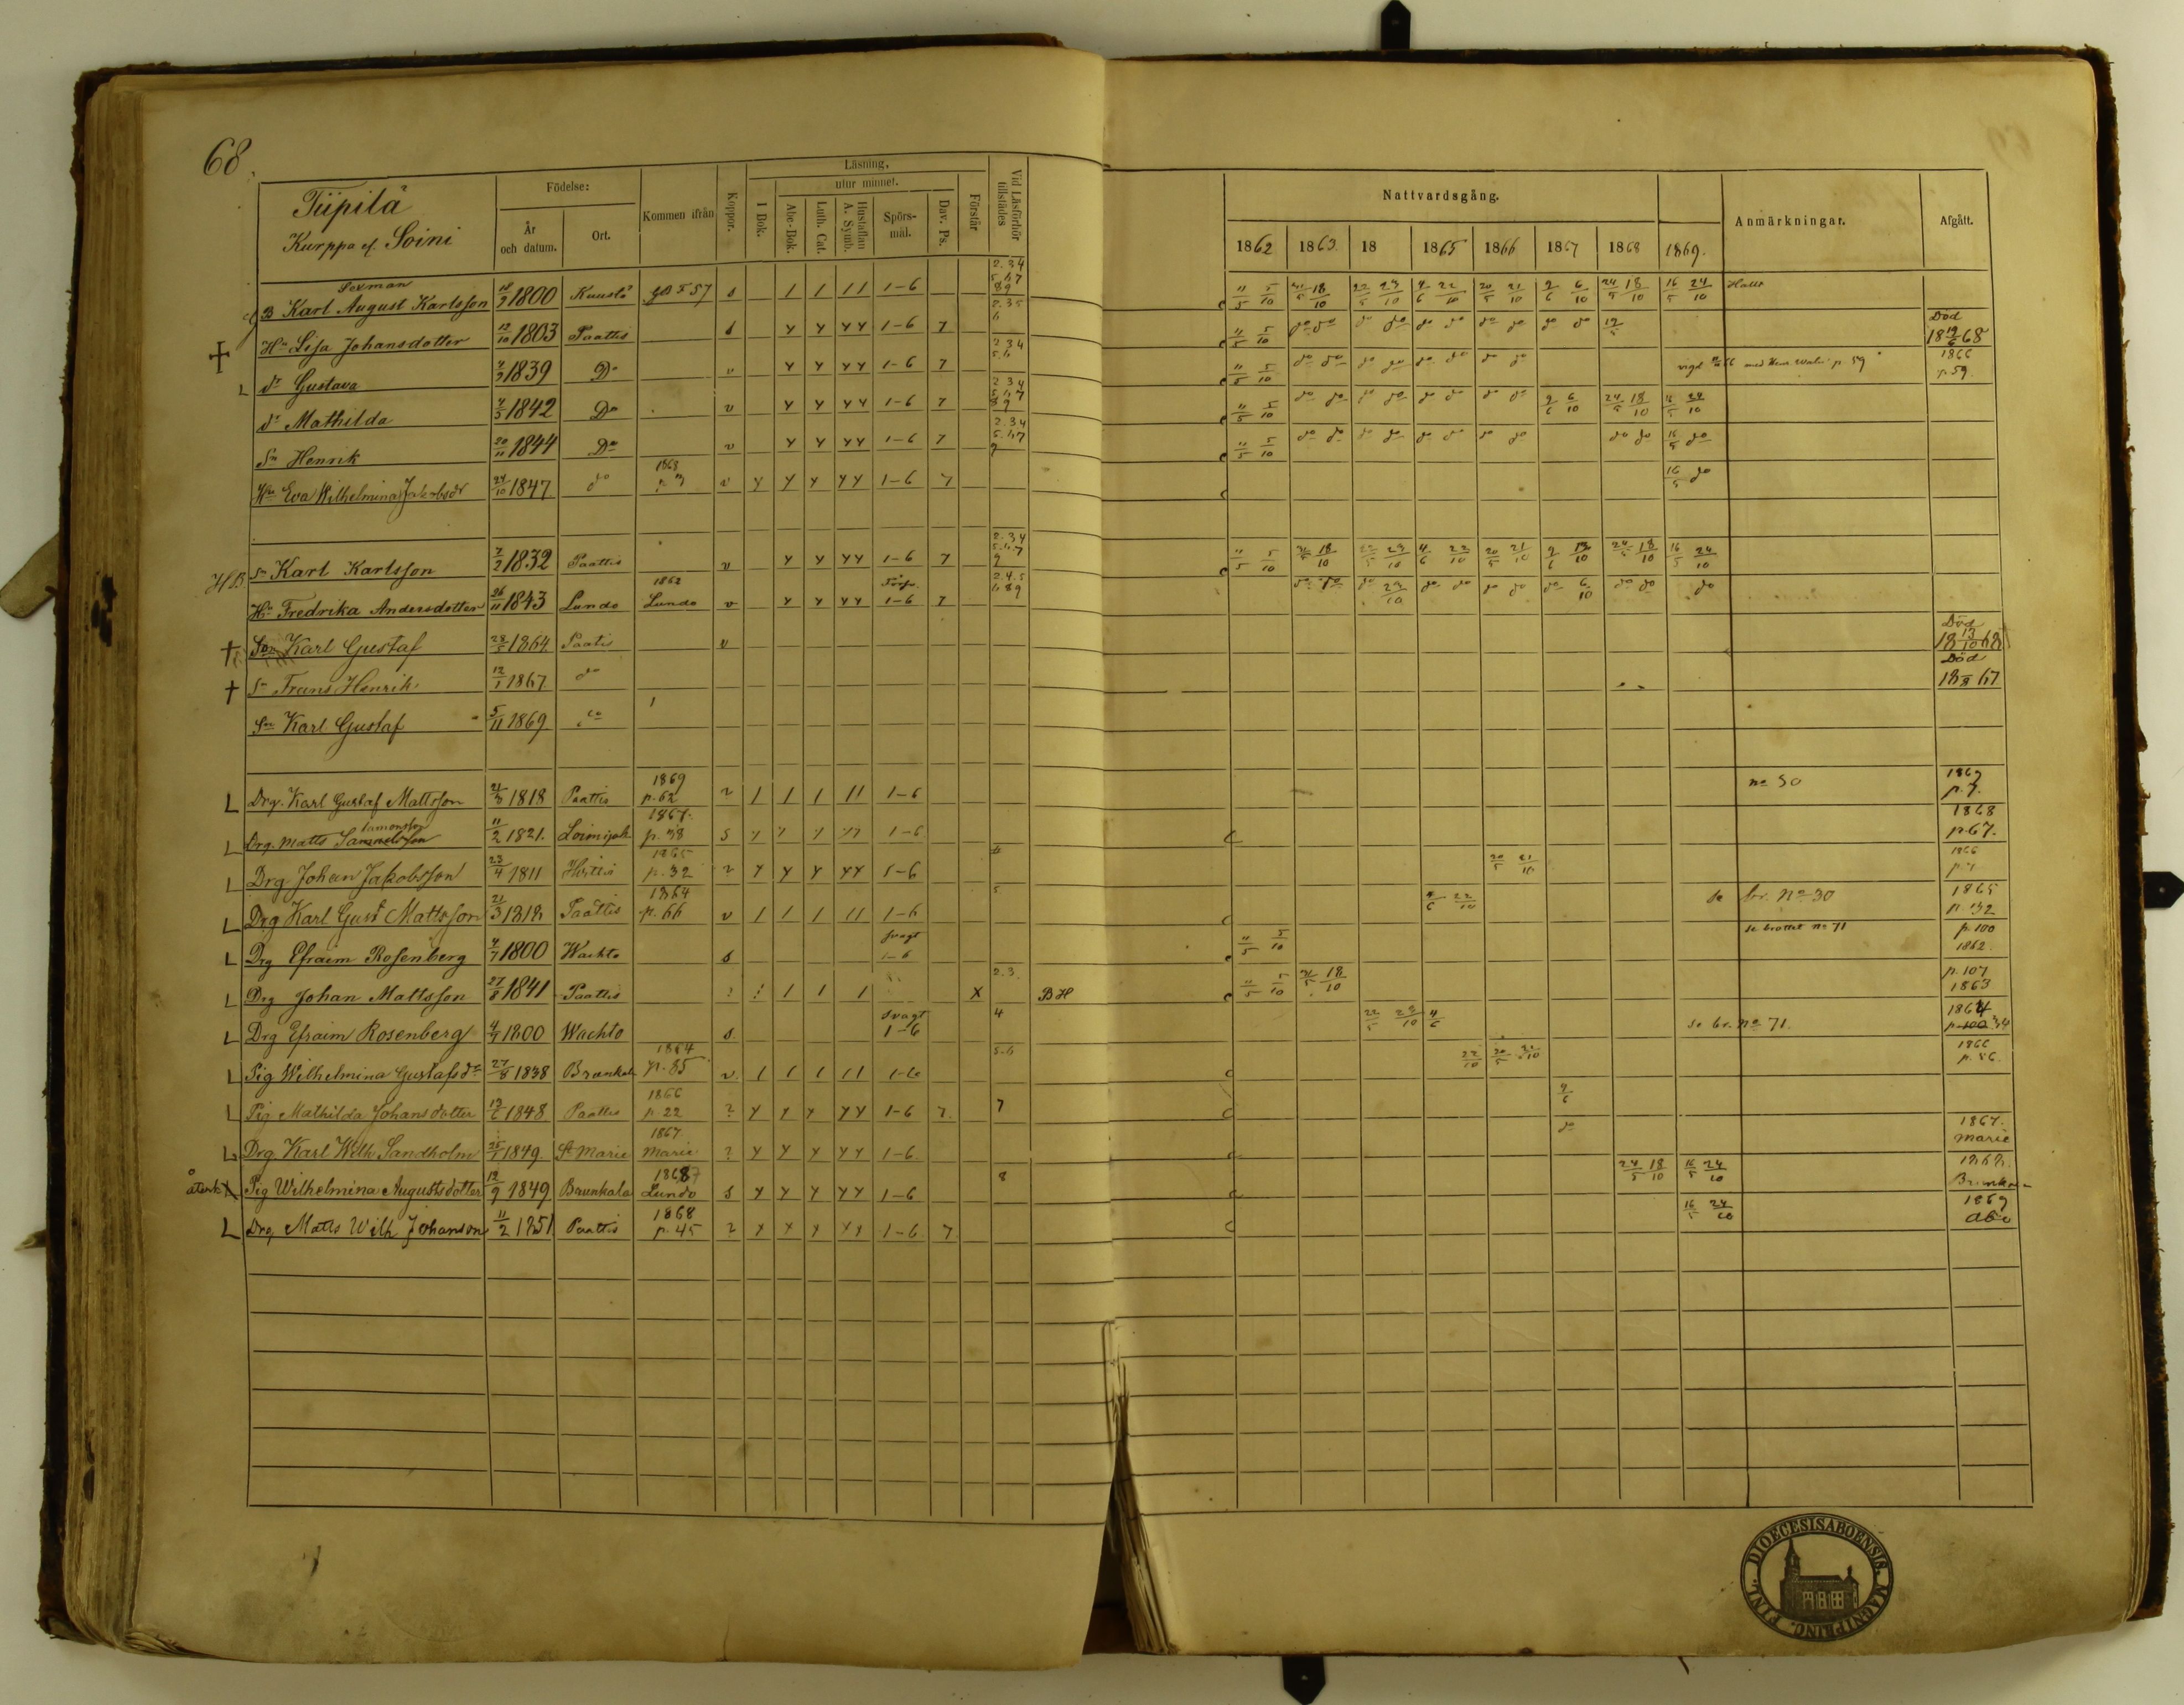 68.
Tiipilä
Kurppa el. Soini
Födelse:
År och datum.
Ort.
Kommen ifrån
Koppor.
Läsning,
I Bok.
utur minnet.
Abc-Bok.
Luth. Cat.
Hustaflan A. Symb.
Spörsmål.
Dav. Ps.
Förstår
Vid Läsförhör tillstädes
Nattvardsgång.
1862 1863. 18 1865 1866 1867 1868 1869.
Anmärkningar.
Afgått.
Sexman
B Karl August Karlsson 18/9 1800 Kuustö s 1 1 11 1-6 2.34 5.6,7 89 11/5 5/10 31/5 18/10 22/5 23/10 4/6 22/10 20/5 21/10 9/6 6/10 24/5 18/10 16/5 24/10
Hu Lisa Johansdotter 12/10 1803 Paattis s y y yy 1-6 7 2.35 6 11/5 5/10 do do do do do do do do do do 19/5 Död 18 19/6 68
dr Gustava 4/9 1839 Do v y y yy 1-6 7 234 5.6 11/5 5/10 do do do do do do do do p 59 1866 p.59
dr Mathilda 4/5 1842 Do v y y yy 1-6 7 234 5.6,7 89 11/5 5/10 do do do do do do do do 9/6 6/10 24/5 18/10 16/5 24/10
Sn Henrik 20/11 1844 Do v y y yy 1-6 7 2.34 5.6,7 9 11/5 5/10 do do do do do do do do do do 16/5 do
Hu Eva Wilhelmina Jakobsdr 24/10 1847 do 1868 v y y y yy 1-6 7 16/5 do
HB Sn Karl Karlsson 7/2 1832 Paattis v y y yy 1-6 7 2.34 5.6,7 9 11/5 5/10 31/5 18/10 22/5 23/10 4/6 22/10 20/5 21/10 9/6 13/10 24/5 18/10 16/5 24/10
Hu Fredrika Andersdotter 26/11 1843 Lundo 1862 Lundo v y y yy 1-6 7 2.4.5 689 do do do 23/10 do do do do do 6/10 do do do
Son Karl Gustaf 28/5 1864 Paatis v Död 18 13/10 68
Sn Frans Henrik 12/1 1867 do Död
Sn Karl Gustaf 5/11 1869 do
L Drg. Karl Gustaf Mattsson 21/3 1818 Paattis 1869 p.62 v 1 1 1 11 1-6 no 30 1869 p.7.
L Drg. Matts 11/2 1821. Loimijoki 1867. p.38 s 1-6 1868 p.67.
L Drg Johan Jakobsson 23/4 1811 1865 p.32 v y y y yy 5-6 20/5 21/10 1866
L Drg Karl Gust Mattsson 21/3 1818 Paattis 1864 p.66 v 1 1 1 11 1-6 5 4/6 22/10 se br. No 30 1865 p.132
L Drg Efraim Rosenberg 4/7 1800 Wachto s svagt 1-6 11/5 5/10 se brottet no 71 p.100 1862.
L Drg Johan Mattsson 27/8 1841 Paattis 1 1 1 X 2.3. BH 11/5 5/10 31/5 18/10 p.107 1863
L Drg Efraim Rosenberg 4/7 1800 Wachto s svagt 1-6 4 22/5 23/10 4/6 se br. no 71. 1864 p.100
L Pig Wilhelmina Gustafsdr 27/8 1838 Brunkala 1864 p.85 v 1 1 1 11 1-6 5.6 22/10 20/5 21/10 1866
L Pig Mathilda Johansdotter 1848 Paattis 1866 p.22 y y y yy 1-6 7 7 9/6
L Drg Karl Wilh Sandholm 1849 St Marie 1867. Marie y y y yy 1-6 do 1867. Marie
Pig Wilhelmina Augustsdotter 12/9 1849 Brunkala Lundo s y y y yy 1-6 8 24/5 18/10 16/5 24/10 1868
L Drg Matts Wilh Johanson 11/2 1851 Paattis 1868 p.45 y y y yy 1-6 7 16/5 24/10 1869 Åbo
DIOECESIS ABOENSIS. MAGNI PRINC. FINL.